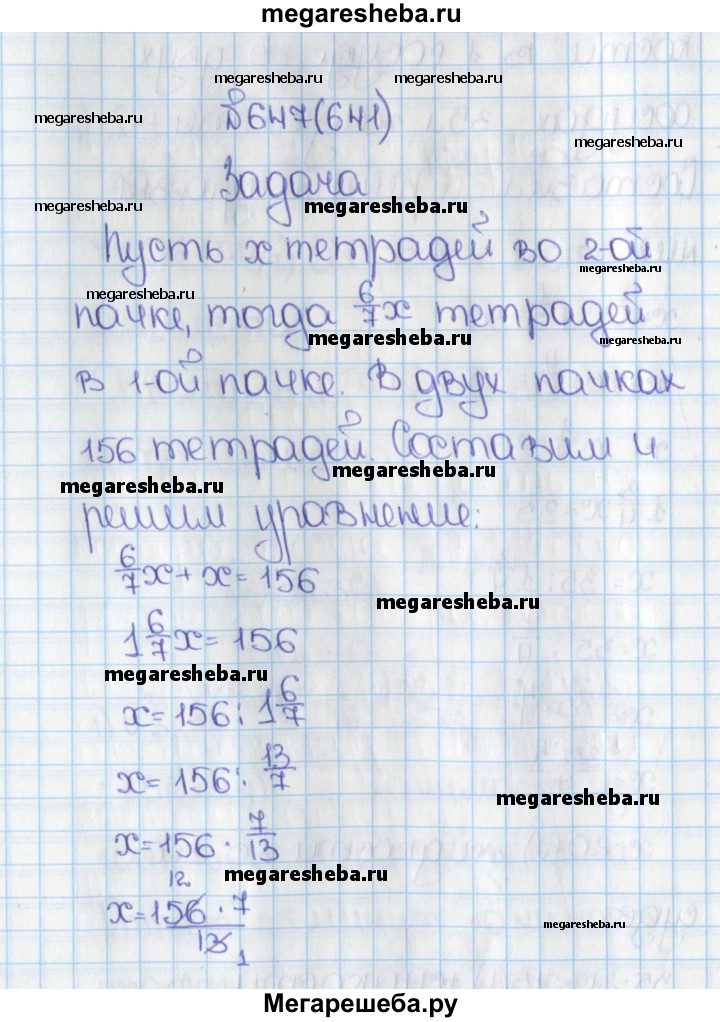 megaresheba.ru
megaresheba.ru megaresheba.ru
megaresheba.ru
№647(641)
megaresheba.ru
Задача
megaresheba.ru
megaresheba.ru
Пусть x тетрадей во 2-ой
megaresheba.ru
megaresheba.ru
пачке, тогда 6/7x тетрадей
megaresheba.ru
megaresheba.ru
в 1-ой пачке. В двух пачках
156 тетрадей. Составим и
megaresheba.ru
megaresheba.ru
решим уравнение:
6/7x + x = 156
megaresheba.ru
1 6/7x = 156
megaresheba.ru
x = 156 : 1 6/7
x = 156 : 13/7
megaresheba.ru
x = 156 · 7/13
megaresheba.ru
12
x = 156 · 7
megaresheba.ru
13 1
Мегарешеба.ру